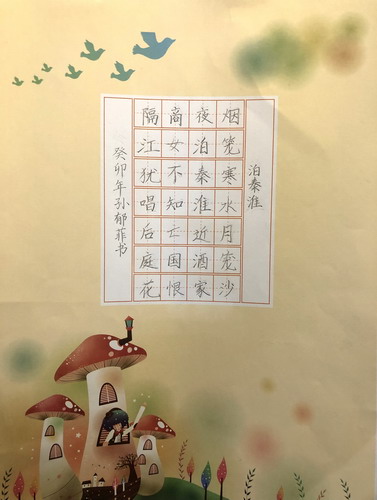 泊秦淮
烟笼寒水月笼沙
夜泊秦淮近酒家
商女不知亡国恨
隔江犹唱后庭花
癸卯年孙郁菲书